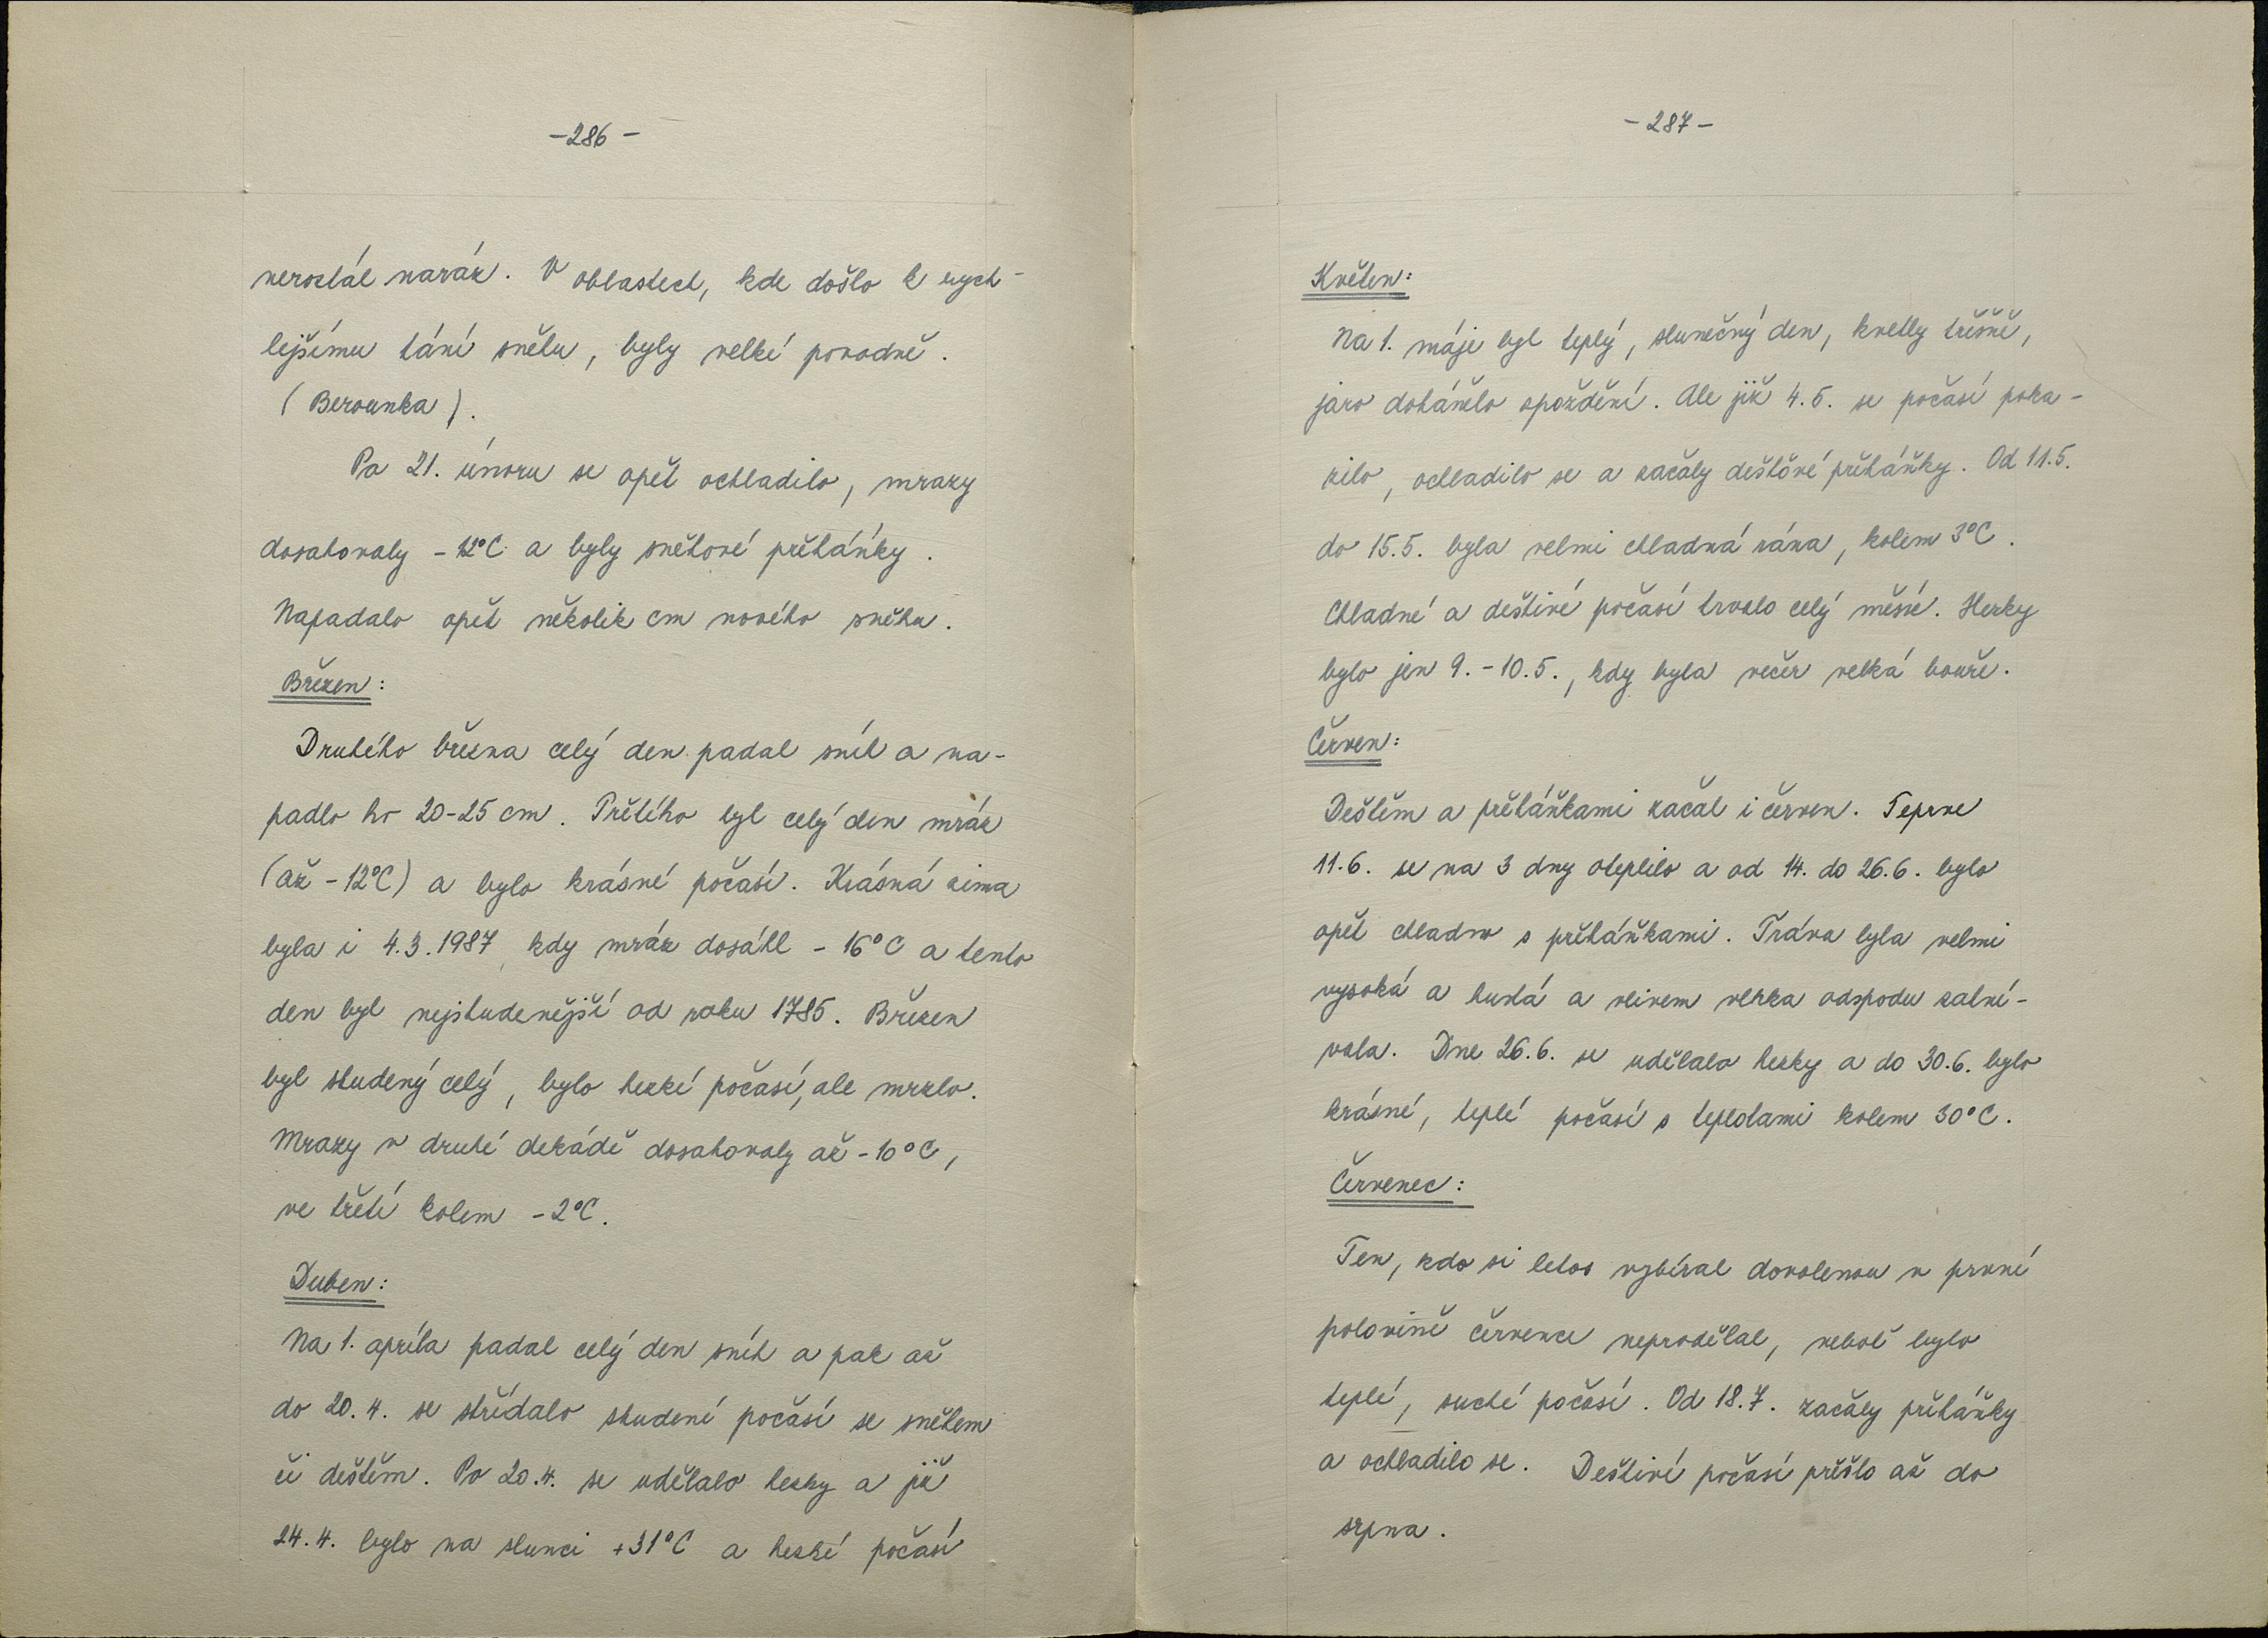 -286-
neroztál naráz. V oblastech, kde došlo k rych-
lejšímu tání sněhu, byly velké povodně.
(Berounka).
Po 21. únoru se opět ochladilo, mrazy
dosahovaly -12°C a byly sněhové přeháňky.
Napadalo opět několik cm nového sněhu.
Březen:
Druhého března celý den padal sníh a na-
padlo ho 20-25 cm. Třetího byl celý den mráz
(až -12°C) a bylo krásné počasí. Krásná zima
byla i 4.3.1987, kdy mráz dosáhl -16°C a tento
den byl nejstudenější od roku 1785. Březen
byl studený celý, bylo hezké počasí, ale mrzlo.
Mrazy v druhé dekádě dosahovaly až -10°C,
ve třetí kolem -2°C.
Duben:
Na 1. apríla padal celý den sníh a pak až
do 20.4. se střídalo studené počasí se sněhem
či deštěm. Po 20.4. se udělalo hezky a již
24.4. bylo na slunci +31°C a hezké počasí
-287-
Květen:
Na 1. máje byl teplý, slunečný den, kvetly třešně,
jaro dohánělo opoždění. Ale již 4.5. se počasí poka-
zilo, ochladilo se a začaly dešťové přeháňky. Od 11.5.
do 15.5. byla velmi chladná rána, kolem 3°C.
Chladné a deštivé počasí trvalo celý měsíc. Hezky
bylo jen 9.-10.5., kdy byla večer velká bouře.
Červen:
Deštěm a přeháňkami začal i červen. Teprve
11.6. se na 3 dny oteplilo a od 14. do 26.6. bylo
opět chladno s přeháňkami. Tráva byla velmi
vysoká a hustá a vlivem vlhka odspodu zahní-
vala. Dne 26.6. se udělalo hezky a do 30.6. bylo
krásné, teplé počasí s teplotami kolem 30°C.
Červenec:
Ten, kdo si letos vybíral dovolenou v první
polovině července neprodělal, neboť bylo
teplé, suché počasí. Od 18.7. začaly přeháňky
a ochladilo se. Deštivé počasí přešlo až do
srpna.